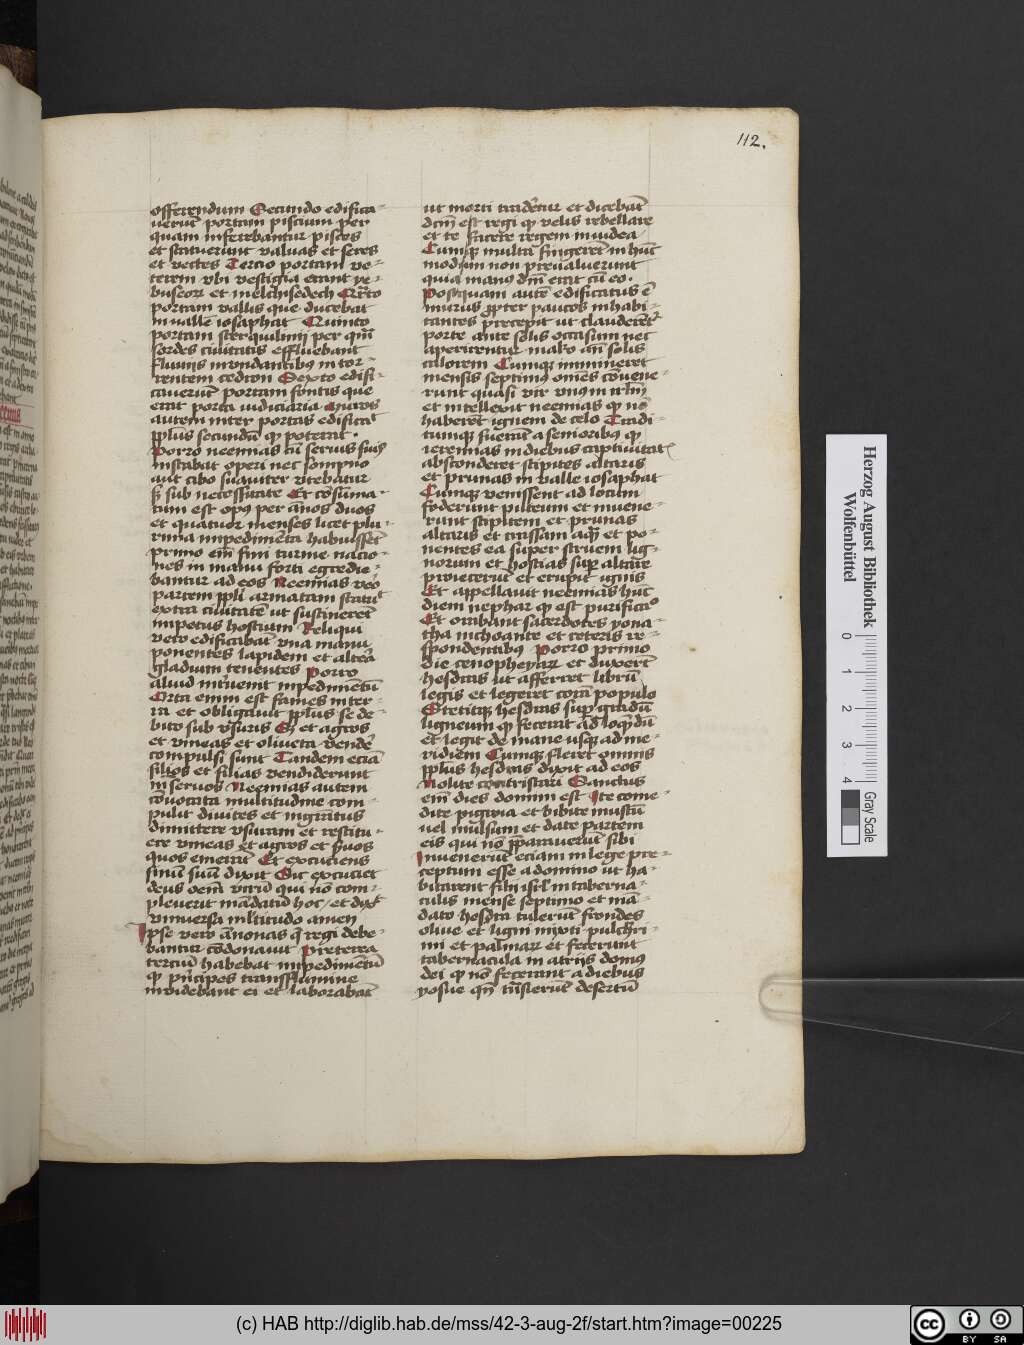 112.
offerendum Secundo edifica-
uerūt portam piscium per
quam inferebantur pisces
et statuerunt valuas et seras
et vectes Tercio portam ve-
terem vbi vestigia erant
et melchisedech
portam vallis que ducebat
in vallē iosaphat Quinto
portam sterquilinij per qm̄
sordes ciuitatis effluebant
fluuijs inundantibꝰ in tor-
rentem cedron Sexto edifi-
cauerūt portam fontis que
erat porta iudiciaria Muros
autem inter portas edificat
ppls̄ secundū qꝫ poterat.
Porro neemias cū seruis suis
instabat operi nec sompno
aut cibo suauiter vtebatur
sꝫ sub necessitate Et cōsūma-
tum est opꝰ per ānos duos
et quatuor menses licet plu-
rima impedimēta habuissēt
primo em̄ finitime nacio-
nes in manu forti egredie-
bantur ad eos Neemias vēo
partem ppli armatam statuit
extra ciuitatē ut sustinerēt
impetus hostium Reliqui
vero edificabāt vna manu
ponentes lapidem et altera
gladium tenentes Porro
aliud int̄uenit impedimētū
Orta enim est fames in ter-
ra et obligauit ppls̄ se de-
bito sub vsuris et agros
et vineas et oliueta vendē
compulsi sunt Tandem eciā
filios et filias vendiderunt
in seruos Neemias autem
cōuocata multitudine com-
pulit diuites et
dimittere vsuram et restitu-
ere vineas et agros et ẜuos
quos emerāt Et excuciens
sinū suū dixit Sic excuciet
deus oēm virū qui nō com-
pleuerit mādatū hoc, et dixit
vniuersa ml̄titudo amen
Ipse vero ānonas qꝫ regi debe-
bantur cōdonauit Preterea
terciū habebat impedimētū
qꝫ pn̄cipes transflumine
inuidebant ei et laborabāt
ut morti tradēetur et dicebāt
dm̄ est regi qꝫ velis rebellare
et te facere regem in iudea
Cumqꝫ multa fingerēt in hūc
modum non preualuerunt
quia manꝰ dn̄i erat cū eo.
Postquam autē edificatus ē
murus ppter paucos inhabi-
tantes precepit ut clauderētᷣ
porte ante solis occasum nec
aperirentur ān solis
calorem Cumqꝫ immineret
mensis septimꝰ om̄s cōuene-
runt quasi vir vnꝰ in irl̄m
et intellexit neemias qꝫ nō
haberēt ignem de celo Tradi-
tumqꝫ fuerat a senioribꝰ qꝫ
ieremias in diebus captiuitat
absconderet stipites altaris
et prunas in valle iosaphat
Cumqꝫ venissent ad locum
foderunt puteum et inuene-
runt stipitem et prunas
altaris et crassam aqū et po-
nentes ea super struem lig-
norum et hostias sup̱ altare
proiecerūt et erupit ignis
Et appellauit neemias hūc
diem nephar qꝫ est purificaō
Et orabant sacerdotes yona-
tha inchoante et ceteris re-
spondentibus Porro primo
die cenophegiarꝫ et dixerūt
hesdras ut afferret librū
legis et legeret corā populo
Stetitqꝫ hesdras sup̱ gradū
ligneum qꝫ fecerat ad loqn̄dū
et legit de mane usqꝫ ad me-
ridiem Cumqꝫ fleret omnis
ppls̄ hesdras dixit ad eos
Nolite contristari Sanctus
em̄ dies domini est Ite come-
dite pigwia et bibite mustū
uel mulsum et date partem
eis qui nō p̄parauerūt sibi
Inuenerūt eciam in lege pre-
ceptum esse a domino ut ha-
bitarent filij isrl̄ in taberna-
culis mense septimo et mā-
dato hesdra tulerūt frondes
oliue et ligni mixti pulchri-
mi et palmarꝫ et fecerunt
tabernacula in atrijs domus
dei qꝫ nō fecerant a diebus
yosue qn̄ tn̄sierūt desertū
Herzog August Bibliothek
Wolfenbüttel
0 1 2 3 4
Gray Scale
(c) HAB http://diglib.hab.de/mss/42-3-aug-2f/start.htm?image=00225
cc BY SA